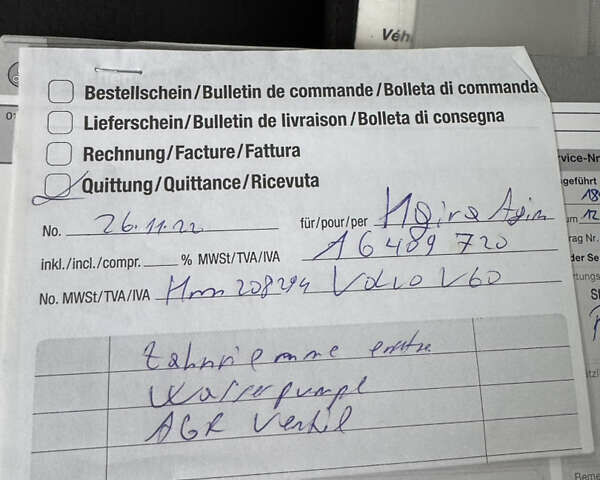 Véh
Bestellschein/Bulletin de commande/Bolleta di commanda
Lieferschein/Bulletin de livraison/Bolleta di consegna
Rechnung/Facture/Fattura
Quittung/Quittance/Ricevuta
No. 26.11.22 für/pour/per
inkl./incl./compr. % MWSt/TVA/IVA AG 489 720
No. MWSt/TVA/IVA 208294 Volvo V60
Zahnriemme
Wasserpumpe
AGR Ventil
vice-Nr
geführt
um 12
rag Nr.
der Se
tungs